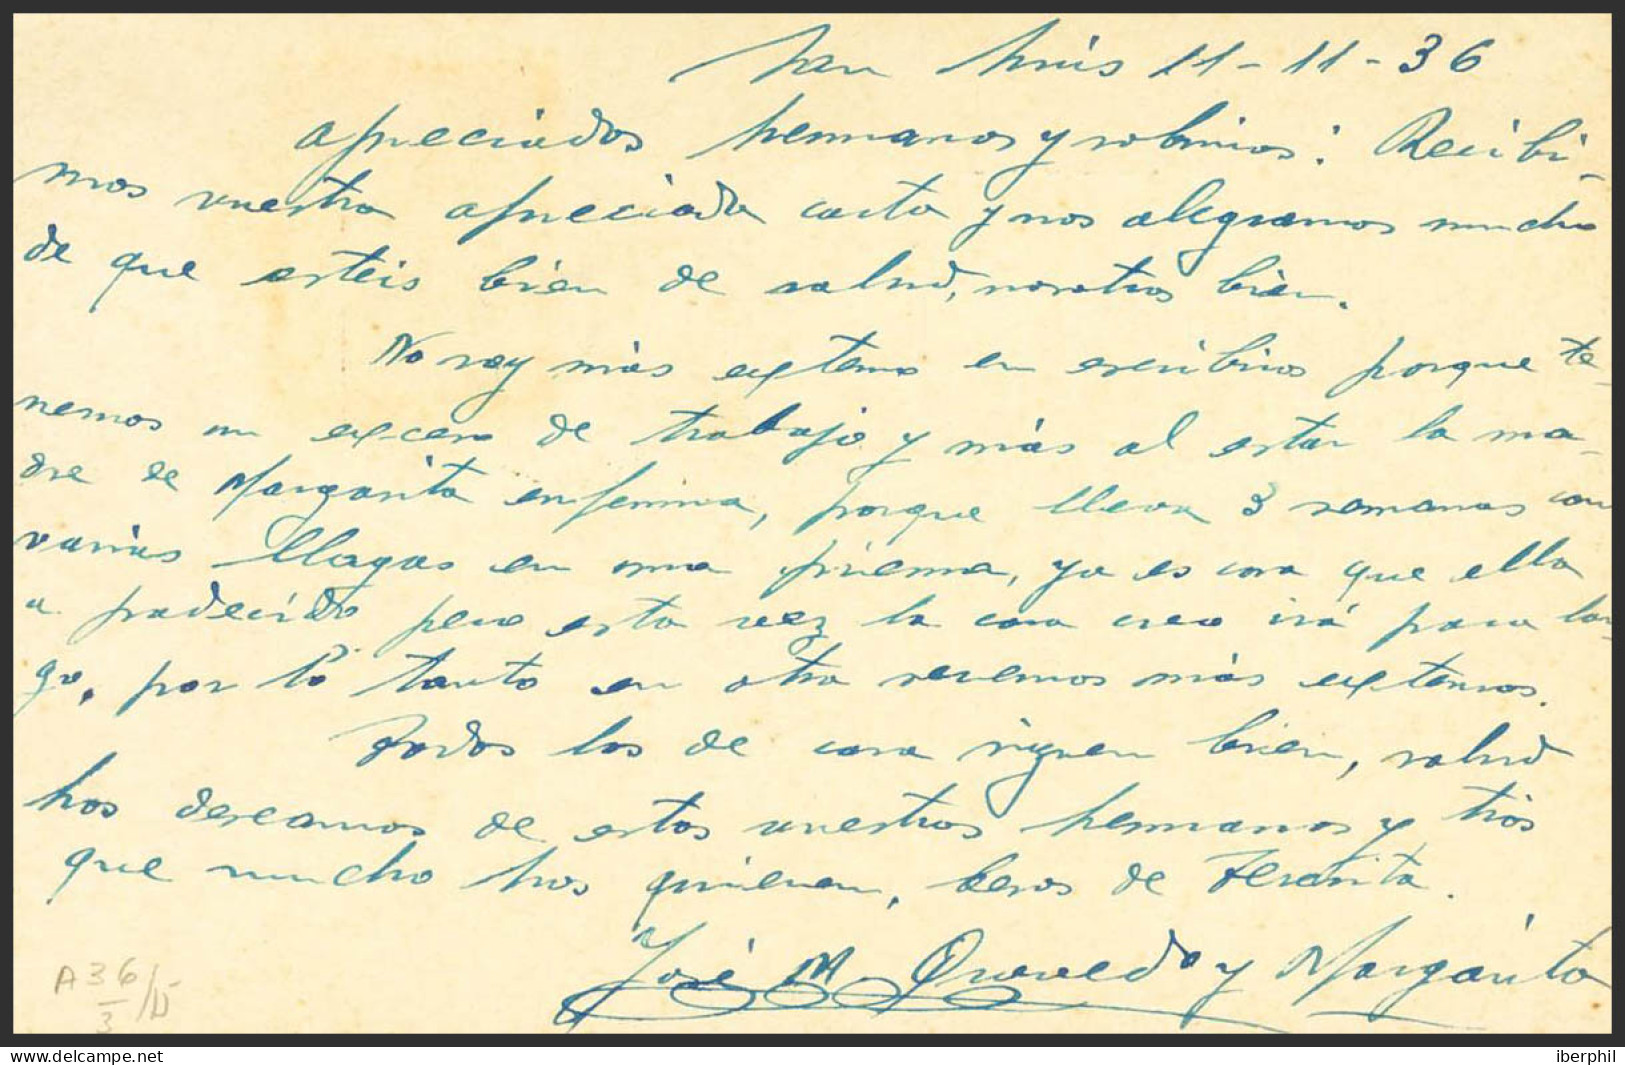 San Luis 11-11-36
apreciados hermanos y sobrinos: Recibi-
mos vuestra apreciada carta y nos alegramos mucho
de que esteis bien de salud, nosotros bien.
No soy más extenso en escribiros porque te-
nemos un exceso de trabajo y más al estar la ma-
dre de Margarita enferma, porque lleva 3 semanas con
varias llagas en una pierna, ya es cosa que ella
a padecido pero esta vez la cosa creo irá para lar-
go, por lo tanto en otra seremos más extensos.
Todos los de casa siguen bien, salud
hos deseamos de estos vuestros hermanos y tíos
que mucho hos quieren, besos de Teresita.
José M. Quevedo y Margarita
A36/D
3
www.delcampe.net
iberphil